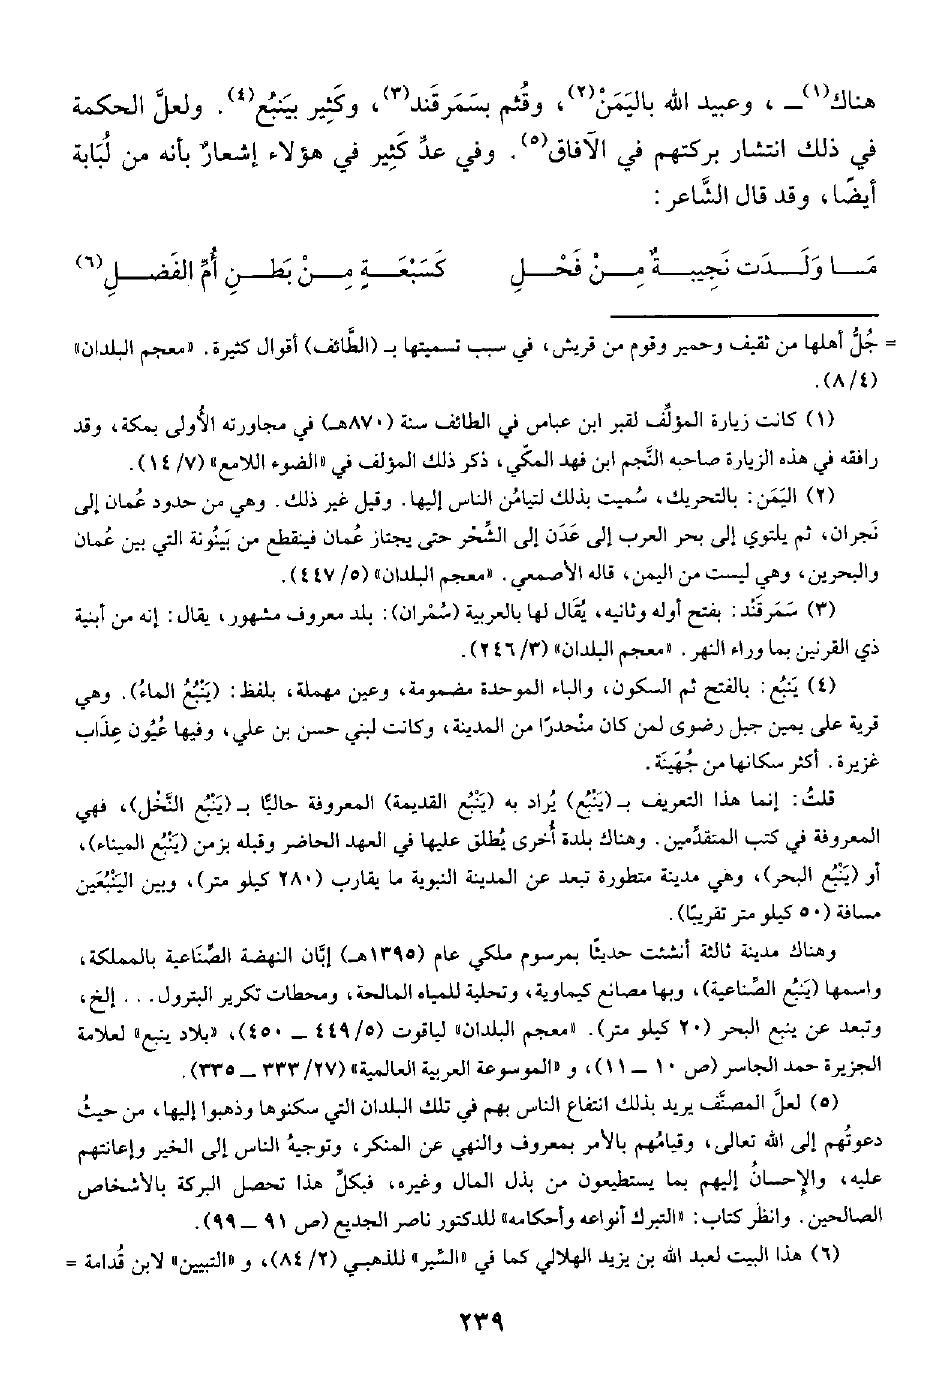 هناك(١) ــ ، وعبيد الله باليَمَنْ(٢)، وقُثم بسَمَرقَند(٣)، وكَثِير بيَنبُع(٤). ولعلَّ الحكمة
في ذلك انتشار بركتهم في الآفاق(٥). وفي عدِّ كَثِير في هؤلاء إشعارٌ بأنه من لُبَابة
أيضًا، وقد قال الشَّاعر :
مَـا وَلَـدَت نَجِيبـةٌ مِـنْ فَحْـلِ كَسَبْعَـةٍ مِـنْ بَطـنِ أُمِّ الفَضـلِ(٦)
= جُلُّ أهلها من ثقيف وحمير وقوم من قريش، في سبب تسميتها بـ (الطَّائف) أقوال كثيرة. «معجم البلدان»
(٤/٨).
(١) كانت زيارة المؤلِّف لقبر ابن عباس في الطائف سنة (٨٧٠هـ) في مجاورته الأُولى بمكة، وقد
رافقه في هذه الزيارة صاحبه النَّجم ابن فهد المكّي، ذكر ذلك المؤلف في «الضوء اللامع» (٧/١٤).
(٢) اليَمَن: بالتحريك، سُميت بذلك لتيامُن الناس إليها. وقيل غير ذلك. وهي من حدود عُمان إلى
نَجران، ثم يلتوي إلى بحر العرب إلى عَدَن إلى الشَّحْر حتى يجتاز عُمان فينقطع من بَينُونة التي بين عُمان
والبحرين، وهي ليست من اليمن، قاله الأصمعي. «معجم البلدان» (٥/٤٤٧).
(٣) سَمَرقَنْد: بفتح أوله وثانيه، يُقَال لها بالعربية (سُمْران): بلد معروف مشهور، يقال: إنه من أبنية
ذي القرنين بما وراء النهر. «معجم البلدان» (٣/٢٤٦).
(٤) يَنبُع: بالفتح ثم السكون، والباء الموحدة مضمومة، وعين مهملة، بلفظ: (يَنْبُعُ الماءُ). وهي
قرية على يمين جبل رضوى لمن كان منْحدرًا من المدينة، وكانت لبني حسن بن علي، وفيها عُيُون عِذَاب
غزيرة. أكثر سكانها من جُهَينَة.
قلتُ: إنما هذا التعريف بـ(يَنْبُع) يُراد به (يَنْبُع القديمة) المعروفة حاليًا بـ(يَنْبُع النَّخْل)، فهي
المعروفة في كتب المتقدِّمين. وهناك بلدة أُخرى يُطلق عليها في العهد الحاضر وقبله بزمن (يَنْبُع الميناء)،
أو (يَنْبُع البحر)، وهي مدينة متطورة تبعد عن المدينة النبوية ما يقارب (٢٨٠ كيلو متر)، وبين اليَنْبُعَين
مسافة (٥٠ كيلو متر تقريبًا).
وهناك مدينة ثالثة أنشئت حديثًا بمرسوم ملكي عام (١٣٩٥هـ) إبَّان النهضة الصِّنَاعية بالمملكة،
واسمها (يَنبُع الصِّناعية)، وبها مصانع كيماوية، وتحلية للمياه المالحة، ومحطات تكرير البترول... إلخ،
وتبعد عن ينبع البحر (٢٠ كيلو متر). «معجم البلدان» لياقوت (٥/٤٤٩ ــ ٤٥٠)، «بلاد ينبع» لعلامة
الجزيرة حمد الجاسر (ص ١٠ ــ ١١)، و «الموسوعة العربية العالمية» (٢٧/٣٣٣ ــ ٣٣٥).
(٥) لعلَّ المصنِّف يريد بذلك انتفاع الناس بهم في تلك البلدان التي سكنوها وذهبوا إليها، من حيثُ
دعوتُهم إلى الله تعالى، وقيامُهم بالأمر بمعروف والنهي عن المنكر، وتوجيهُ الناس إلى الخير وإعانتهم
عليه، والإحسانُ إليهم بما يستطيعون من بذل المال وغيره، فبكلِّ هذا تحصل البركة بالأشخاص
الصالحين. وانظر كتاب: «التبرك أنواعه وأحكامه» للدكتور ناصر الجديع (ص ٩١ ــ ٩٩).
(٦) هذا البيت لعبد الله بن يزيد الهلالي كما في «السِّير» للذهبي (٢/٨٤)، و «التبيين» لابن قُدامة =
٢٣٩